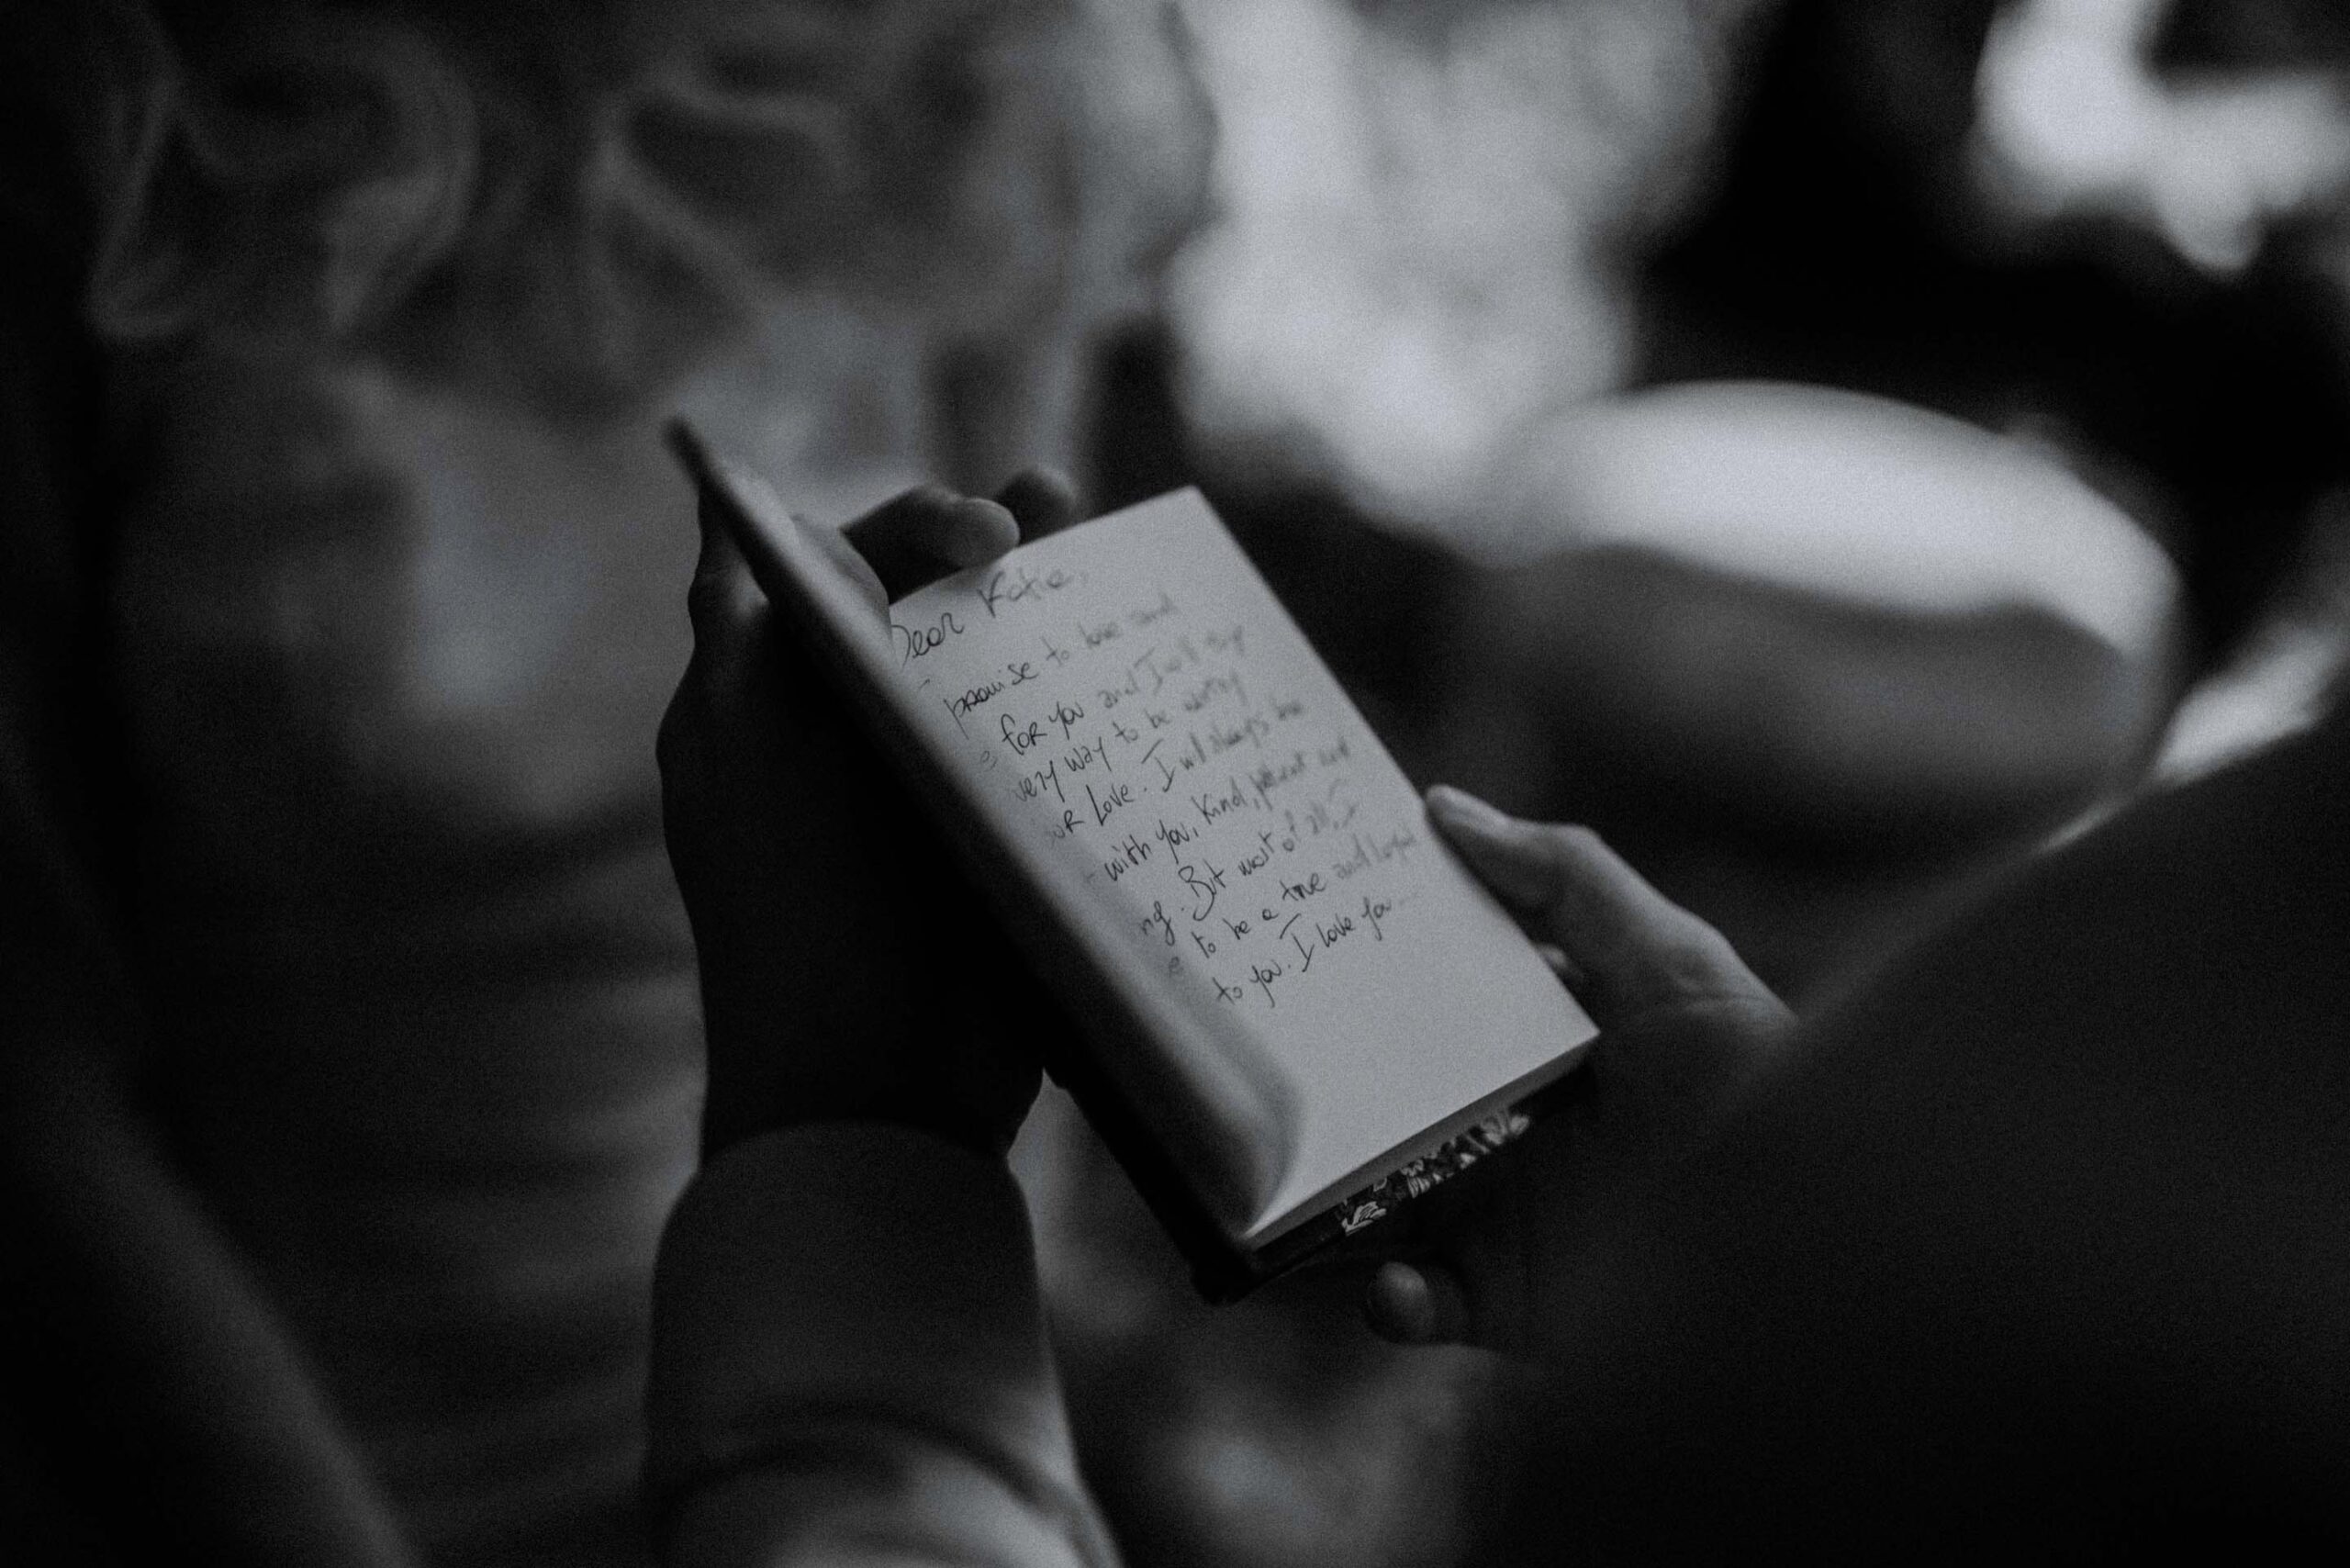 Dear Katie,
promise to love and
for you and I will try
very way to be worthy
our Love. I will always be
with you, kind, patient and
ng. But most of all, I
e to be a true and loyal
to you. I love you...